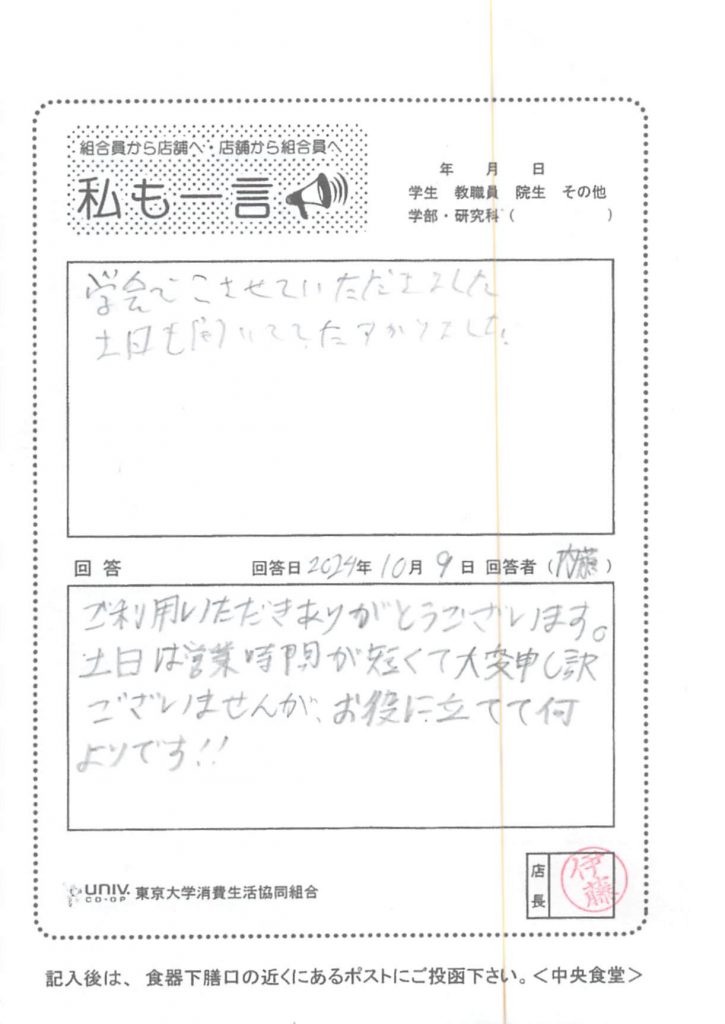 組合員から店舗へ・店舗から組合員へ
私も一言
年 月 日
学生 教職員 院生 その他
学部・研究科 ( )
学会でこさせていただきました
土日も開いてて、たすかりました。
回答 回答日 2024年 10月 9日 回答者 (内藤)
ご利用いただきありがとうございます。
土日は営業時間が短くて大変申し訳
ございませんが、お役に立てて何
よりです!!
UNIV. CO-OP 東京大学消費生活協同組合
店長 伊藤
記入後は、食器下膳口の近くにあるポストにご投函下さい。<中央食堂>